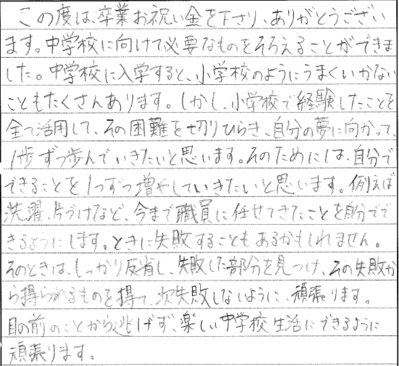 この度は、卒業お祝い金を下さり、ありがとうござい
ます。中学校に向けて必要なものをそろえることができま
した。中学校に入学すると、小学校のようにうまくいかない
こともたくさんあります。しかし、小学校で経験したことを
全て活用して、その困難を切りひらき、自分の夢に向かって、
1歩ずつ歩んでいきたいと思います。そのためには、自分で
できることを1つずつ増やしていきたいと思います。例えば
洗濯、片づけなど、今まで職員に任せてきたことを自分でで
きるようにします。ときに失敗することもあるかもしれません。
そのときは、しっかり反省し、失敗した部分を見つけ、その失敗か
ら得られるものを得て、次失敗しないように、頑張ります。
目の前のことから逃げず、楽しい中学校生活にできるように
頑張ります。